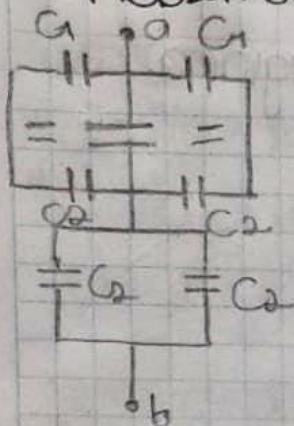 C1 a C1
C2 C2
C2 C2
b